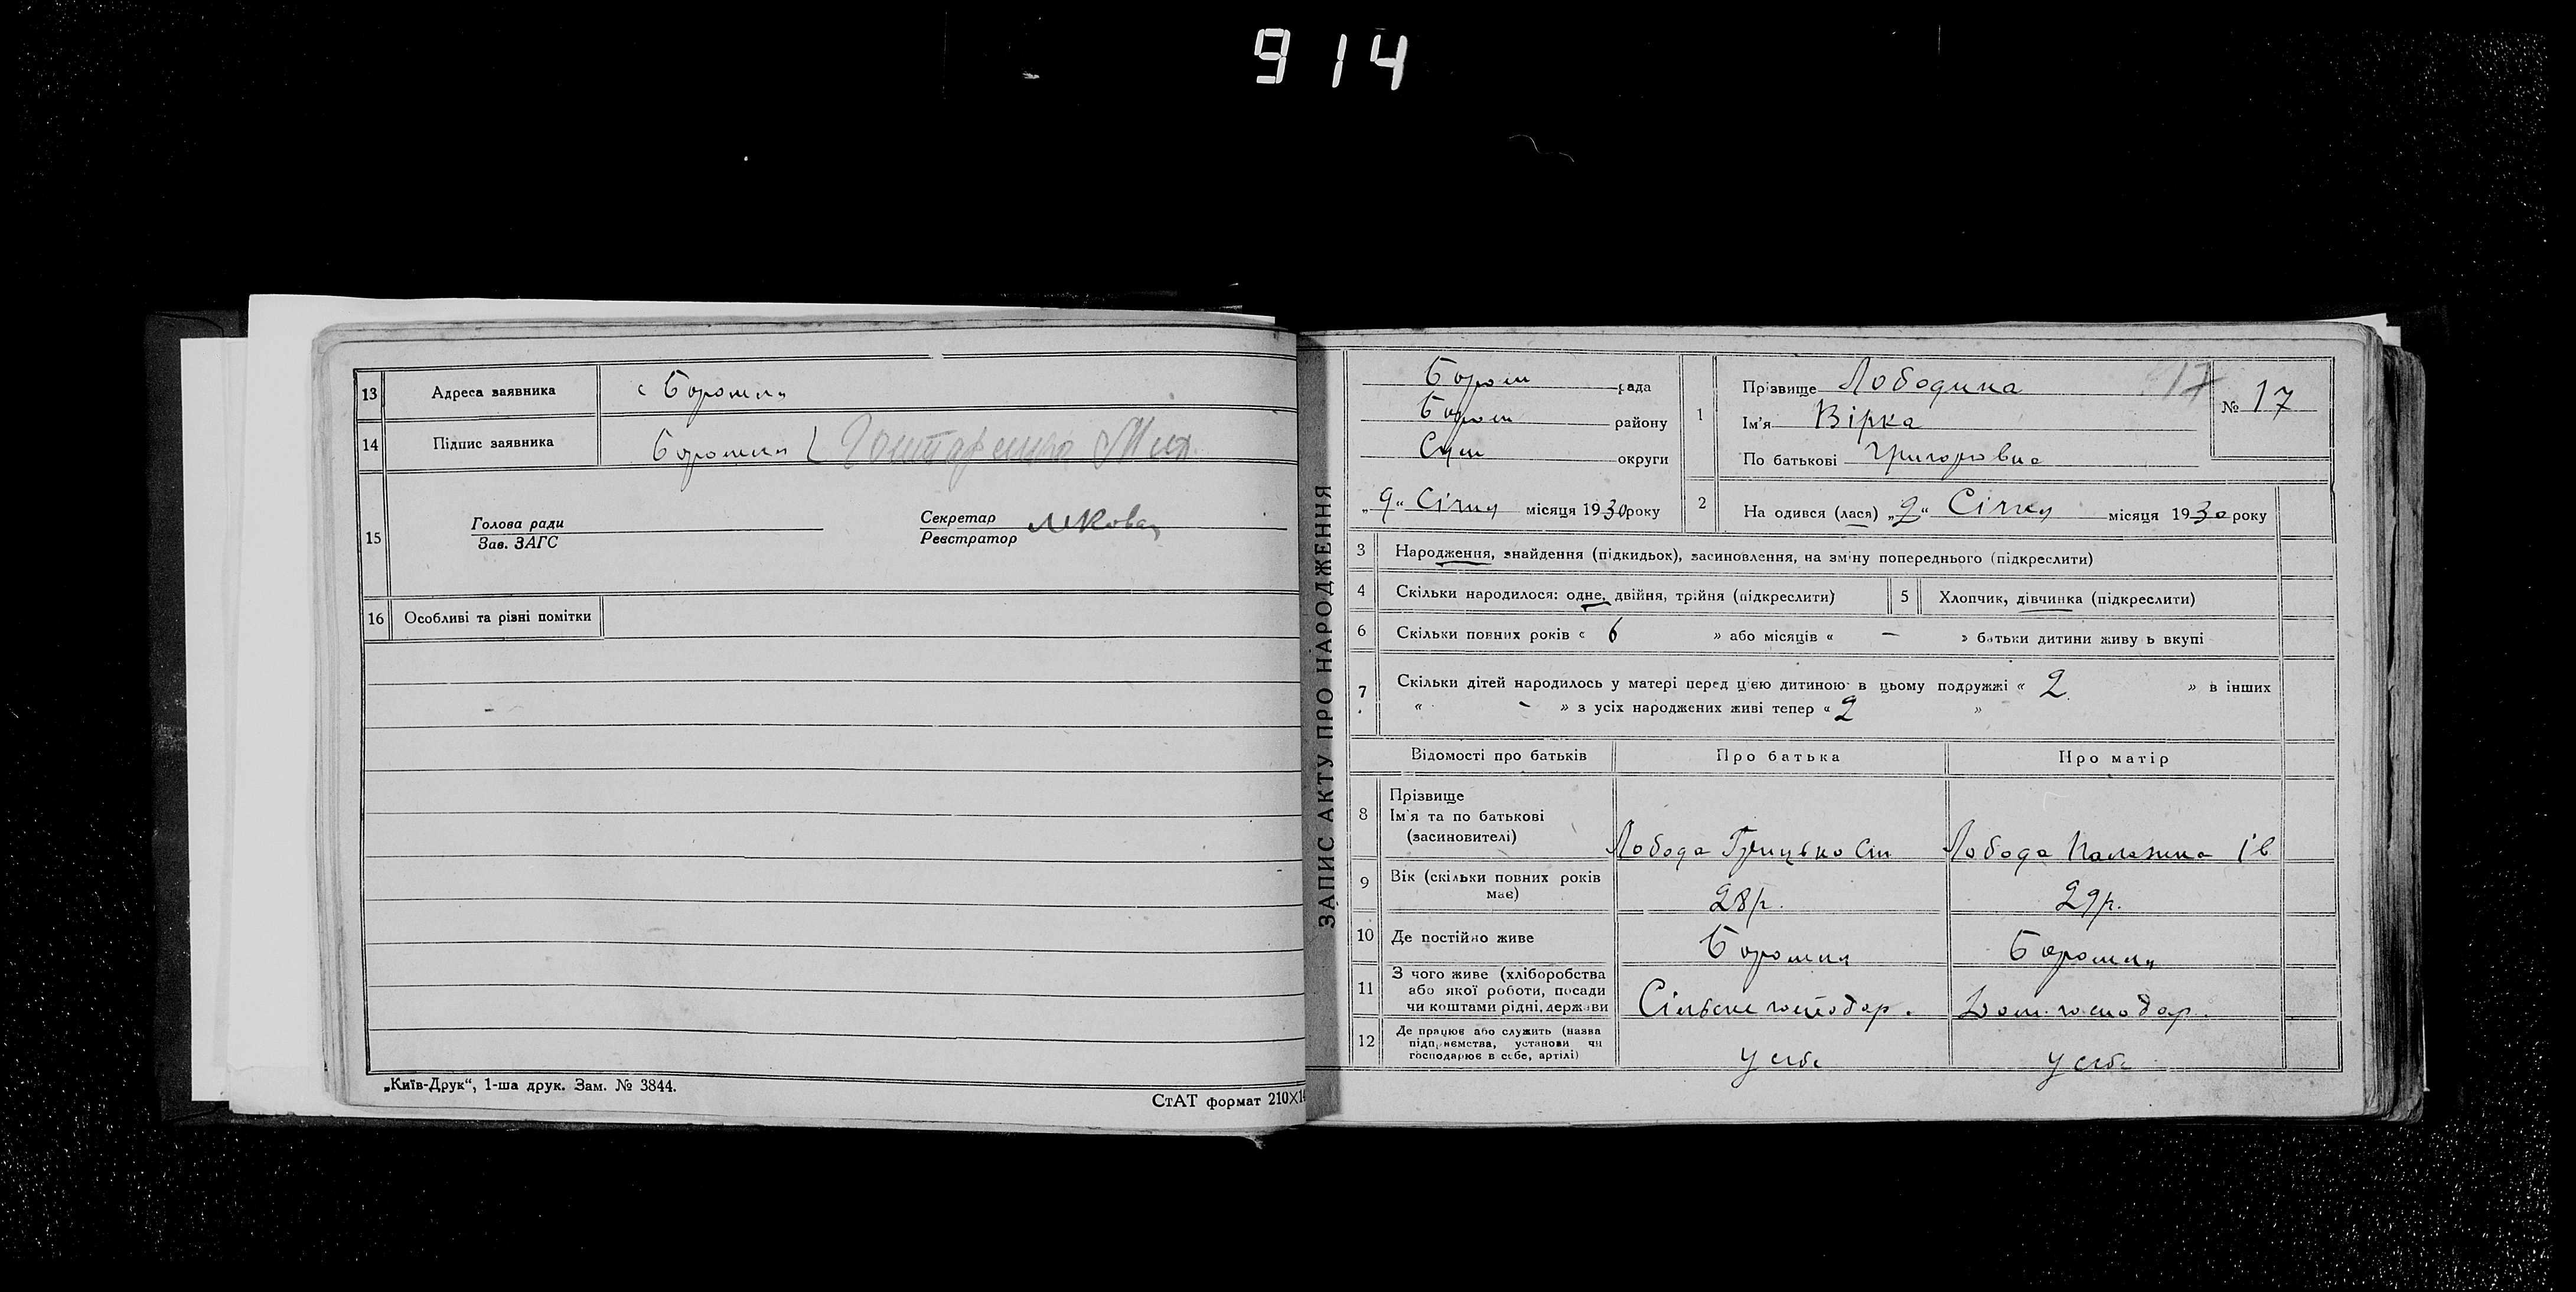 914
13 Адреса заявника с Боромля
14 Підпис заявника Боромля
15 Голова ради
Зав. ЗАГС
Секретар
Реєстратор
16 Особливі та різні помітки
„Київ-Друк“, 1-ша друк. Зам. № 3844.
СтАТ формат 210×14
ЗАПИС АКТУ ПРО НАРОДЖЕННЯ
Бором рада
Бором району
Сум округи
„9“ Січня місяця 1930 року
1 Прізвище Лободина 17
Ім'я Вірка
По батькові Григоровна
№ 17
2 На одився (лася) „9“ Січня місяця 1930 року
3 Народження, знайдення (підкидьок), засиновлення, на зміну попереднього (підкреслити)
4 Скільки народилося: одне, двійня, трійня (підкреслити) 5 Хлопчик, дівчинка (підкреслити)
6 Скільки повних років « 6 » або місяців « — » батьки дитини живу ь вкупі
7 Скільки дітей народилось у матері перед цією дитиною в цьому подружжі « 2 » в інших
« - » з усіх народжених живі тепер « 2 »
Відомості про батьків Про батька Про матір
8 Прізвище
Ім'я та по батькові
(засиновителі)
Лобода Грицько Сти Лобода Палажка Ів
9 Вік (скільки повних років
має)
28 р. 29 р.
10 Де постійно живе Боромля Боромля
11 З чого живе (хліборобства
або якої роботи, посади
чи коштами рідні, держави
Сільске господар. Дом. господар.
12 Де працює або служить (назва
підприємства, установи чи
господарює в себе, артілі)
у себе у себе